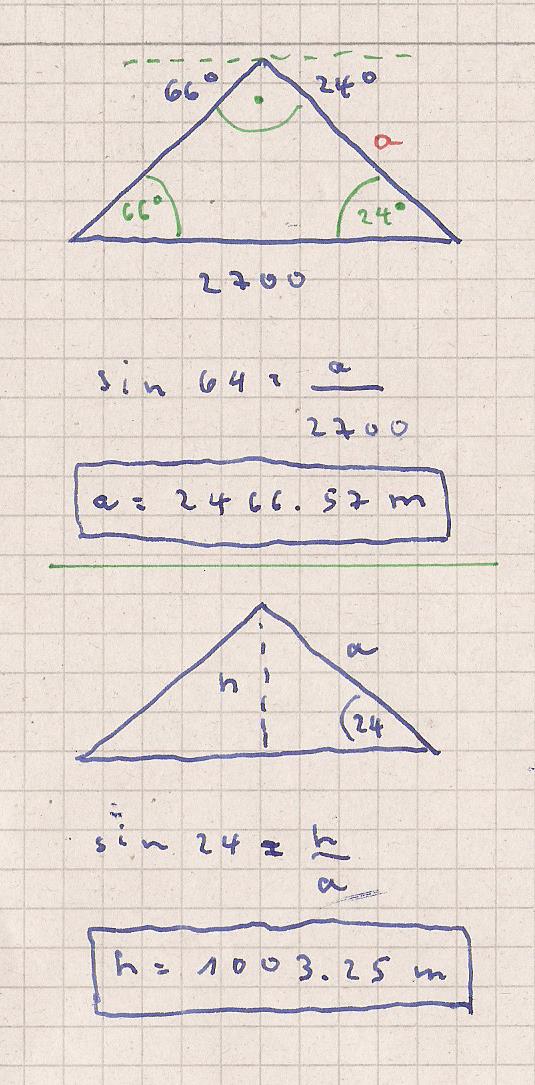 66° 24°
a
66° 24°
2700
sin 64 = a
2700
a = 2466.57 m
a
h
(24
sin 24 = h
a
h = 1003.25 m